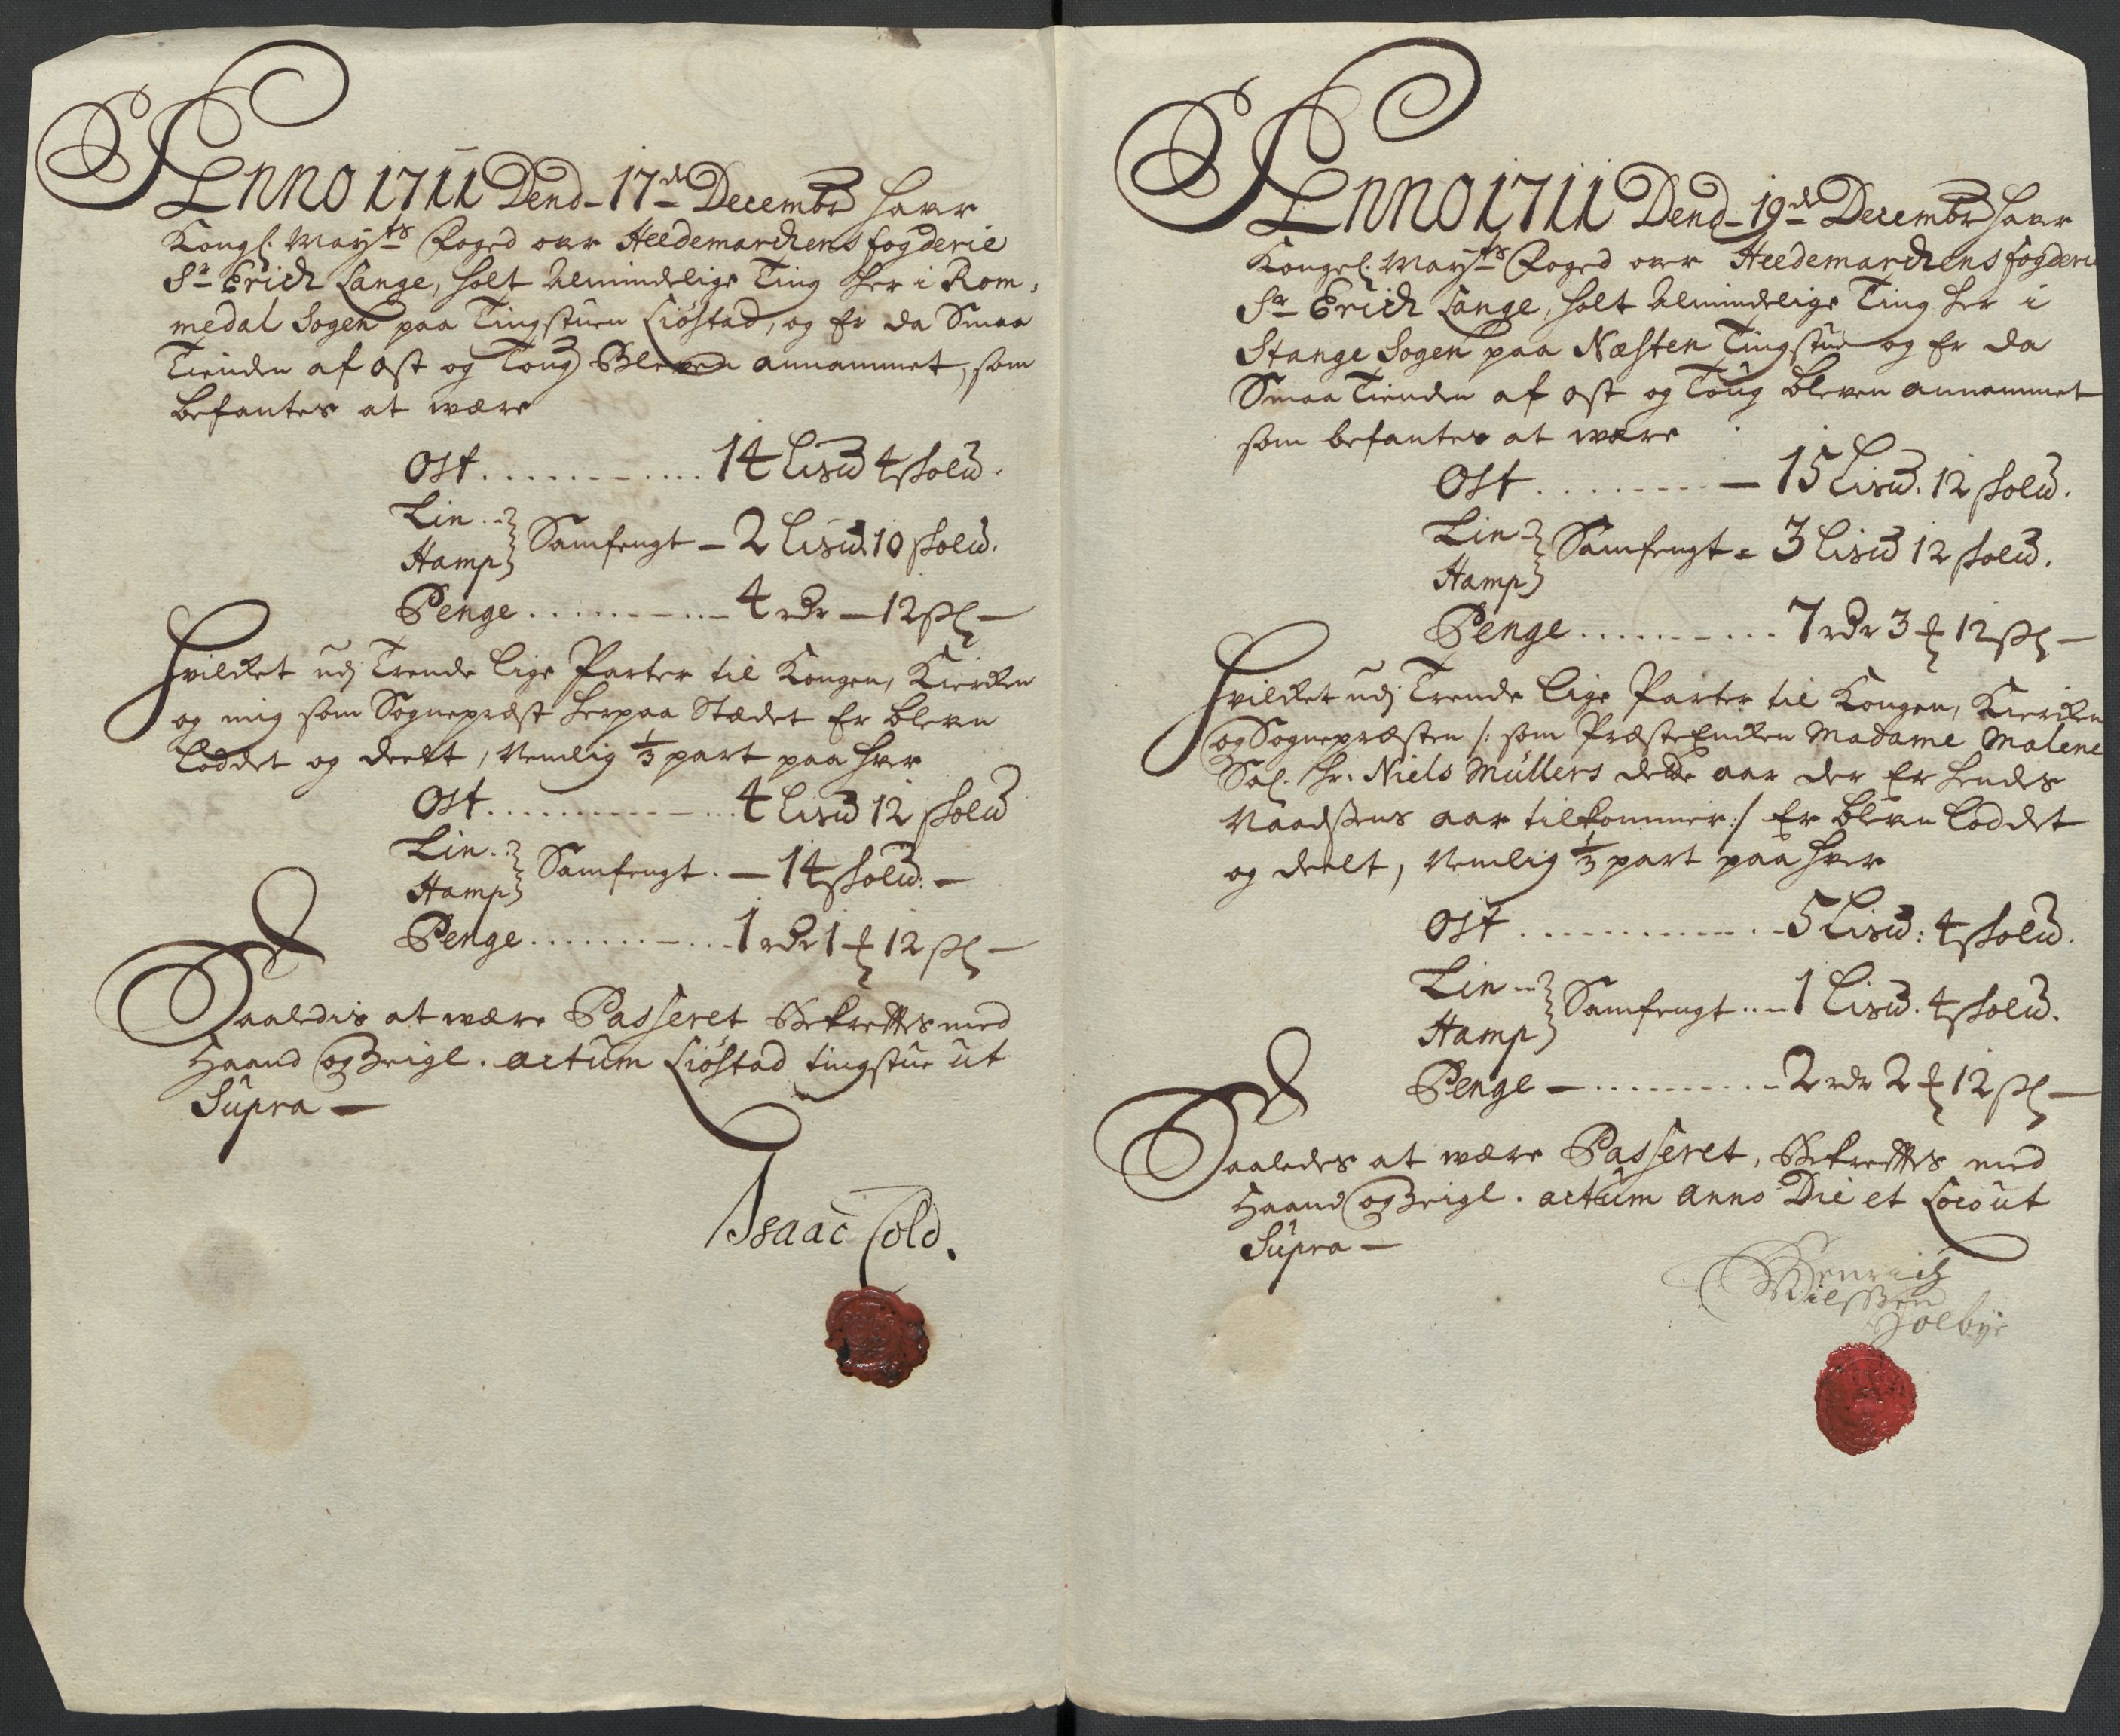 Anno 1711 Dend 17de Decembr hafr
Kongl: May:ts Foged ofr Heedemarckens fogderie
Sr Erich Lange, holt Almindelige Ting her i Rom,
medal Sogen paa Tingstuen Liøstad, og Er da Smaa
Tienden af ost og Toug Bleven annammet, som
befantes at være
Ost . . . . . . . . . . 14 Lis℔ 4 skol℔.
Lin . .
Hamp } Samfengt – 2 Lis℔ 10 skol℔.
Penge . . . . . . . . . . 4 rdr – 12 sh –
Hvilcket udj Trende lige Parter til Kongen, Kiercken
og mig som Sognepræst herpaa Stædet Er blevn
loddet og deelt, Nemlig 1/3 part paa hver
Ost . . . . . . . . . . 4 Lis℔ 12 skol℔
Lin . .
Hamp } Samfengt . – 14 skol℔: –
Penge . . . . . . . . . . 1 rdr 1 ort 12 sh –
Saaledis at være Passeret Bekreftes med
Haand og Zeigl. actum Liøstad tingstue ut
Supra –
Isaac Cold.
Anno 1711 Dend 19de Decembr hafr
Kongel: May:ts Foged over Heedemarckens fogderi
Sr Erich Lange, holt Almindelige Ting her i
Stange Sogen paa Næsten Tingstue og Er da
Smaa Tienden af ost og Toug bleven annammet
som befantes at være
Ost . . . . . . . . – 15 Lis℔. 12 skol℔.
Lin –
Hamp } Samfengt = 3 Lis℔ 12 skol℔.
Penge . . . . . . . . . . 7 rdr 3 ort 12 sh –
Hvilcket udj Trende lige Parter til Kongen, Kiercken
og Sognepræsten /: som PræsteEncken Madame Malene
Sal. Hr. Niels Müllers dette aar der Er hendes
Naadsens aar tilkommer :/ Er blevn loddet
og deelt, Nemlig 1/3 part paa hver
Ost . . . . . . . . . . 5 Lis℔: 4 skol℔.
Lin –
Hamp } Samfengt . . – 1 Lis℔. 4 skol℔.
Penge – . . . . . . . . . 2 rdr 2 ort 12 sh –
Saaledes at være Passeret, Bekreftes med
Haand og Zeigl. actum Anno Die et Loco ut
Supra –
Henrich
Nielssen